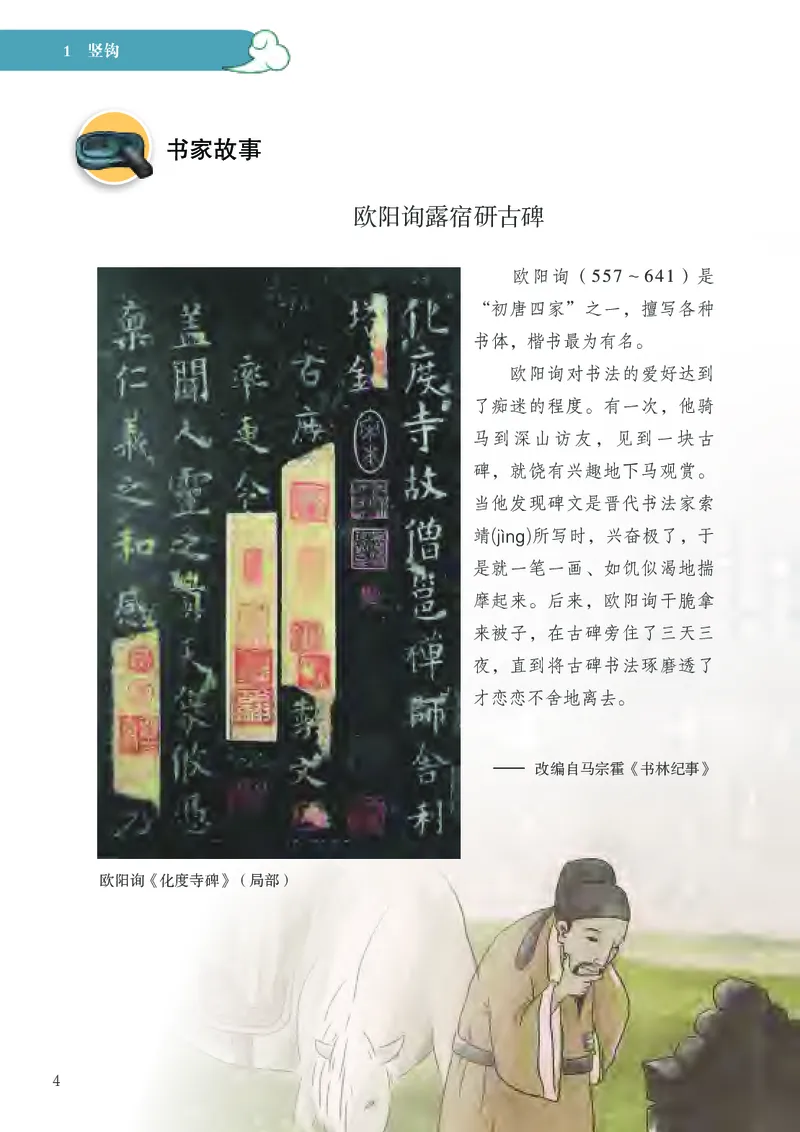 1 竖钩
书家故事
欧阳询露宿研古碑
欧阳询（557～641）是
“初唐四家”之一，擅写各种
书体，楷书最为有名。
欧阳询对书法的爱好达到
了痴迷的程度。有一次，他骑
马到深山访友，见到一块古
碑，就饶有兴趣地下马观赏。
当他发现碑文是晋代书法家索
靖(jìng)所写时，兴奋极了，于
是就一笔一画、如饥似渴地揣
摩起来。后来，欧阳询干脆拿
来被子，在古碑旁住了三天三
夜，直到将古碑书法琢磨透了
才恋恋不舍地离去。
—— 改编自马宗霍《书林纪事》
化度寺故僧邕禅師舎利
塔銘
率更令
蓋聞人靈之
稟仁義之和感
欧阳询《化度寺碑》（局部）
4